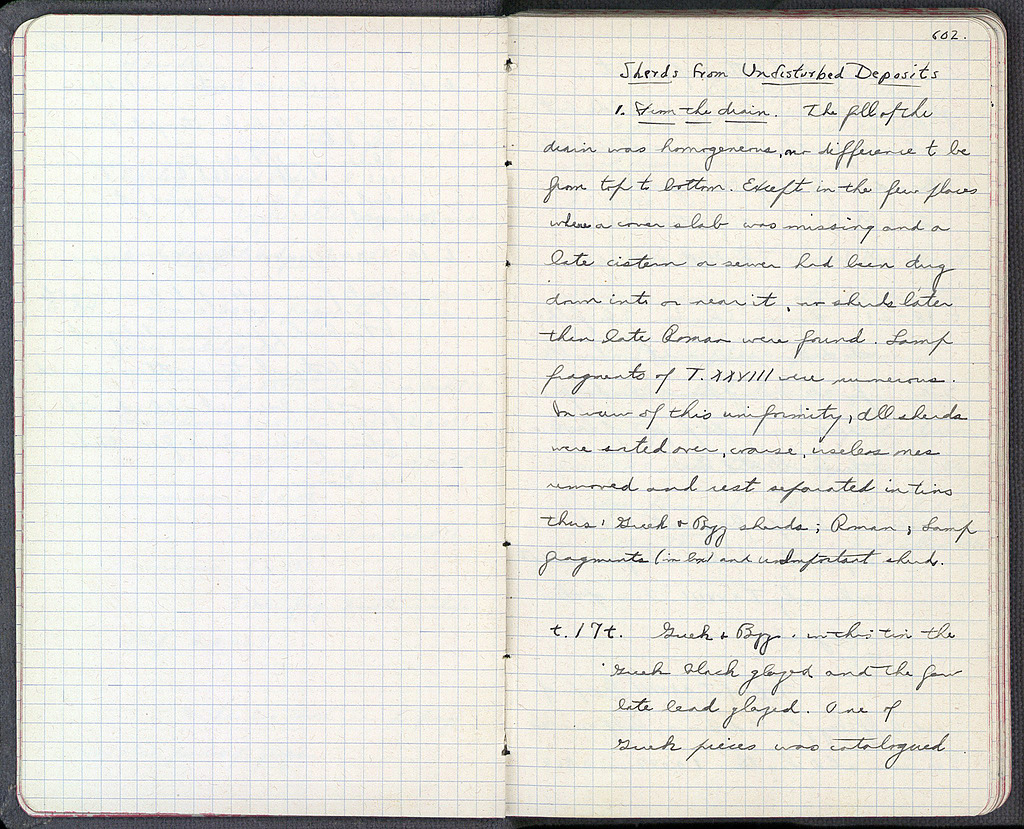 602.
Sherds from Undisturbed Deposits
1. From the drain. The fill of the
drain was homogeneous, no difference t be
from top to bottom. Except in the few places
where a cover slab was missing and a
late cistern or sewer had been dug
down into or near it, no sherds later
than late Roman were found. Lamp
fragments of T. XXVIII were numerous.
In view of this uniformity, all sherds
were sorted over, coarse, useless ones
removed and rest separated in tins
thus: Greek & Byz sherds; Roman; Lamp
fragments (in box) and unimportant sherds.
t. 17t. Greek & Byz. in this tin the
Greek black glazed and the few
late lead glazed. One of
Greek pieces was catalogued